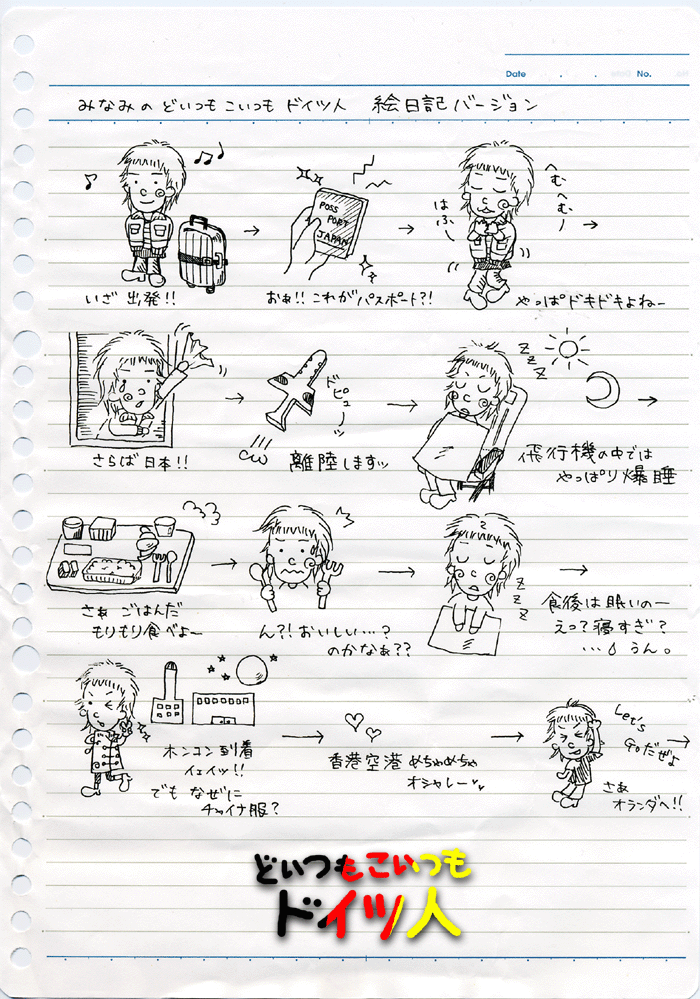 Date . . No.
みなみの どいつも こいつも ドイツ人 絵日記バージョン
いざ 出発!!
PASS
PORT
JAPAN
おぉ!! これが パスポート?!
へむへむー
はふー
やっぱドキドキよねー
さらば 日本!!
ドピューッ
離陸しますッ
z z z
飛行機の中では
やっぱり爆睡
さぁ ごはんだ
もりもり食べよー
ん?! おいしい…?
のかなぁ??
z z z
食後は眠いのー
えっ?寝すぎ?
…うん。
ホンコン到着
イェイッ!!
でも なぜに
チャイナ服?
香港空港 めちゃめちゃ
オシャレー
Let's
Goだぜよ
さぁ
オランダへ!!
どいつもこいつも
ドイツ人